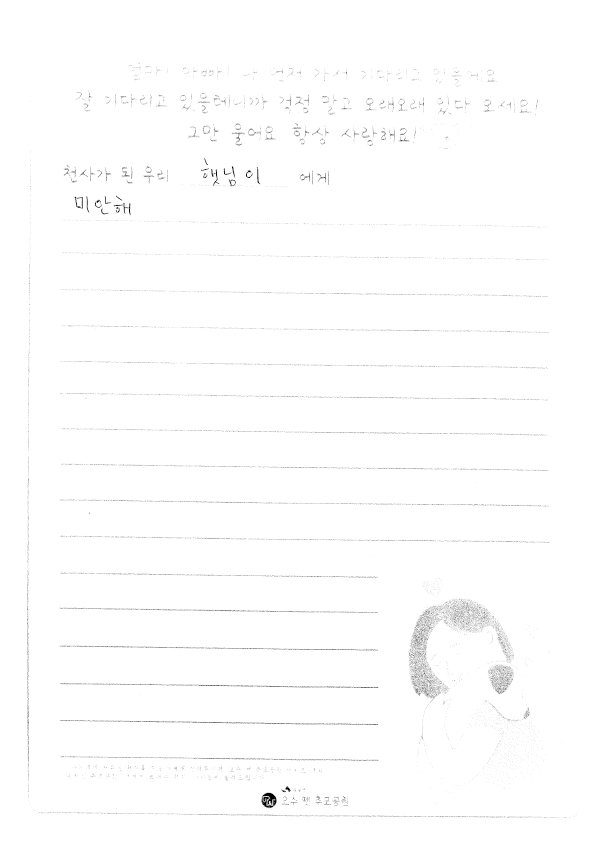 엄마! 아빠! 나 먼저 가서 기다리고 있을게요
잘 기다리고 있을테니까 걱정 말고 오래오래 있다 오세요!
그만 울어요 항상 사랑해요!
천사가 된 우리 햇님이 에게
미안해
오수 펫 추모공원